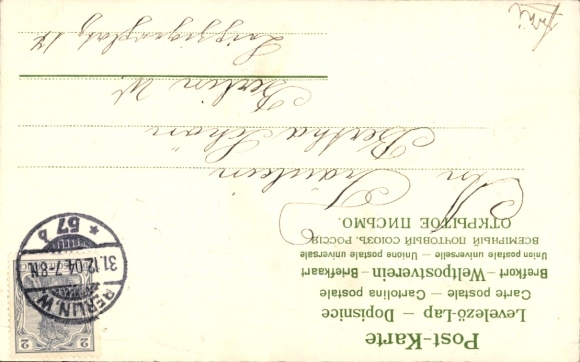 Post-Karte
Levelező-Lap — Dopisnice
Carte postale — Cartolina postale
Brefkort — Weltpostverein — Briefkaart
Union postale universale — Unione postale universale
ВСЕМІРНЫЙ ПОЧТОВЫЙ СОЮЗЪ. РОССІЯ.
ОТКРЫТОЕ ПИСЬМО.
An
Fräulein
Bertha Schön
Berlin W.
Leipzigerplatz 17
2
2
BERLIN, W
31.12.04.7-8N.
* 57 b